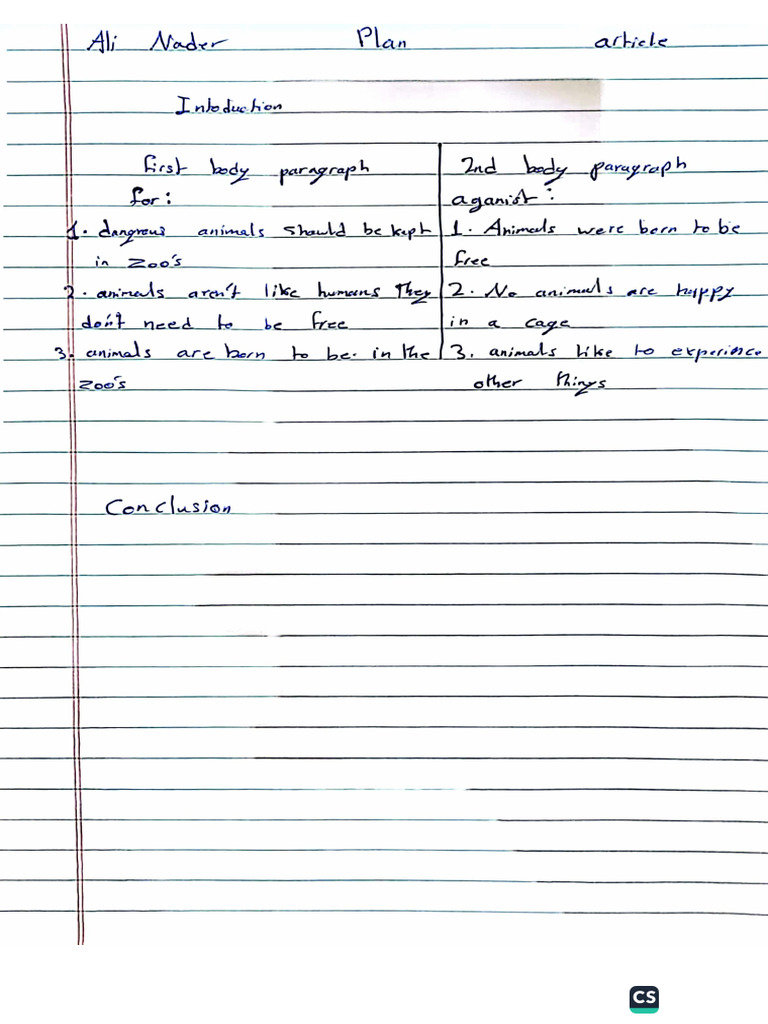 Ali Nader Plan article
Intoduction
first body paragraph
for:
1. dangrous animals should be kept
in zoo's
2. animals aren't like humans they
don't need to be free
3. animals are born to be. in the
zoo's
2nd body paragraph
aganist:
1. Animals were born to be
free
2. No animals are happy
in a cage
3. animals like to experience
other things
Conclusion
CS